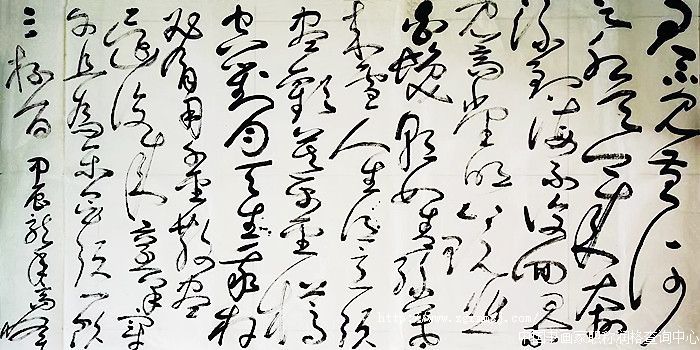 君不见黄河
之水天上来奔
流到海不复回君
不见高堂明镜悲
白发朝如青丝暮
成雪人生得意须
尽欢莫使金樽
空对月天生我材
必有用千金散尽
还复来烹羊宰
牛且为乐会须一饮
三杯百 甲辰龙年高峰
中国书画家职称润格查询中心